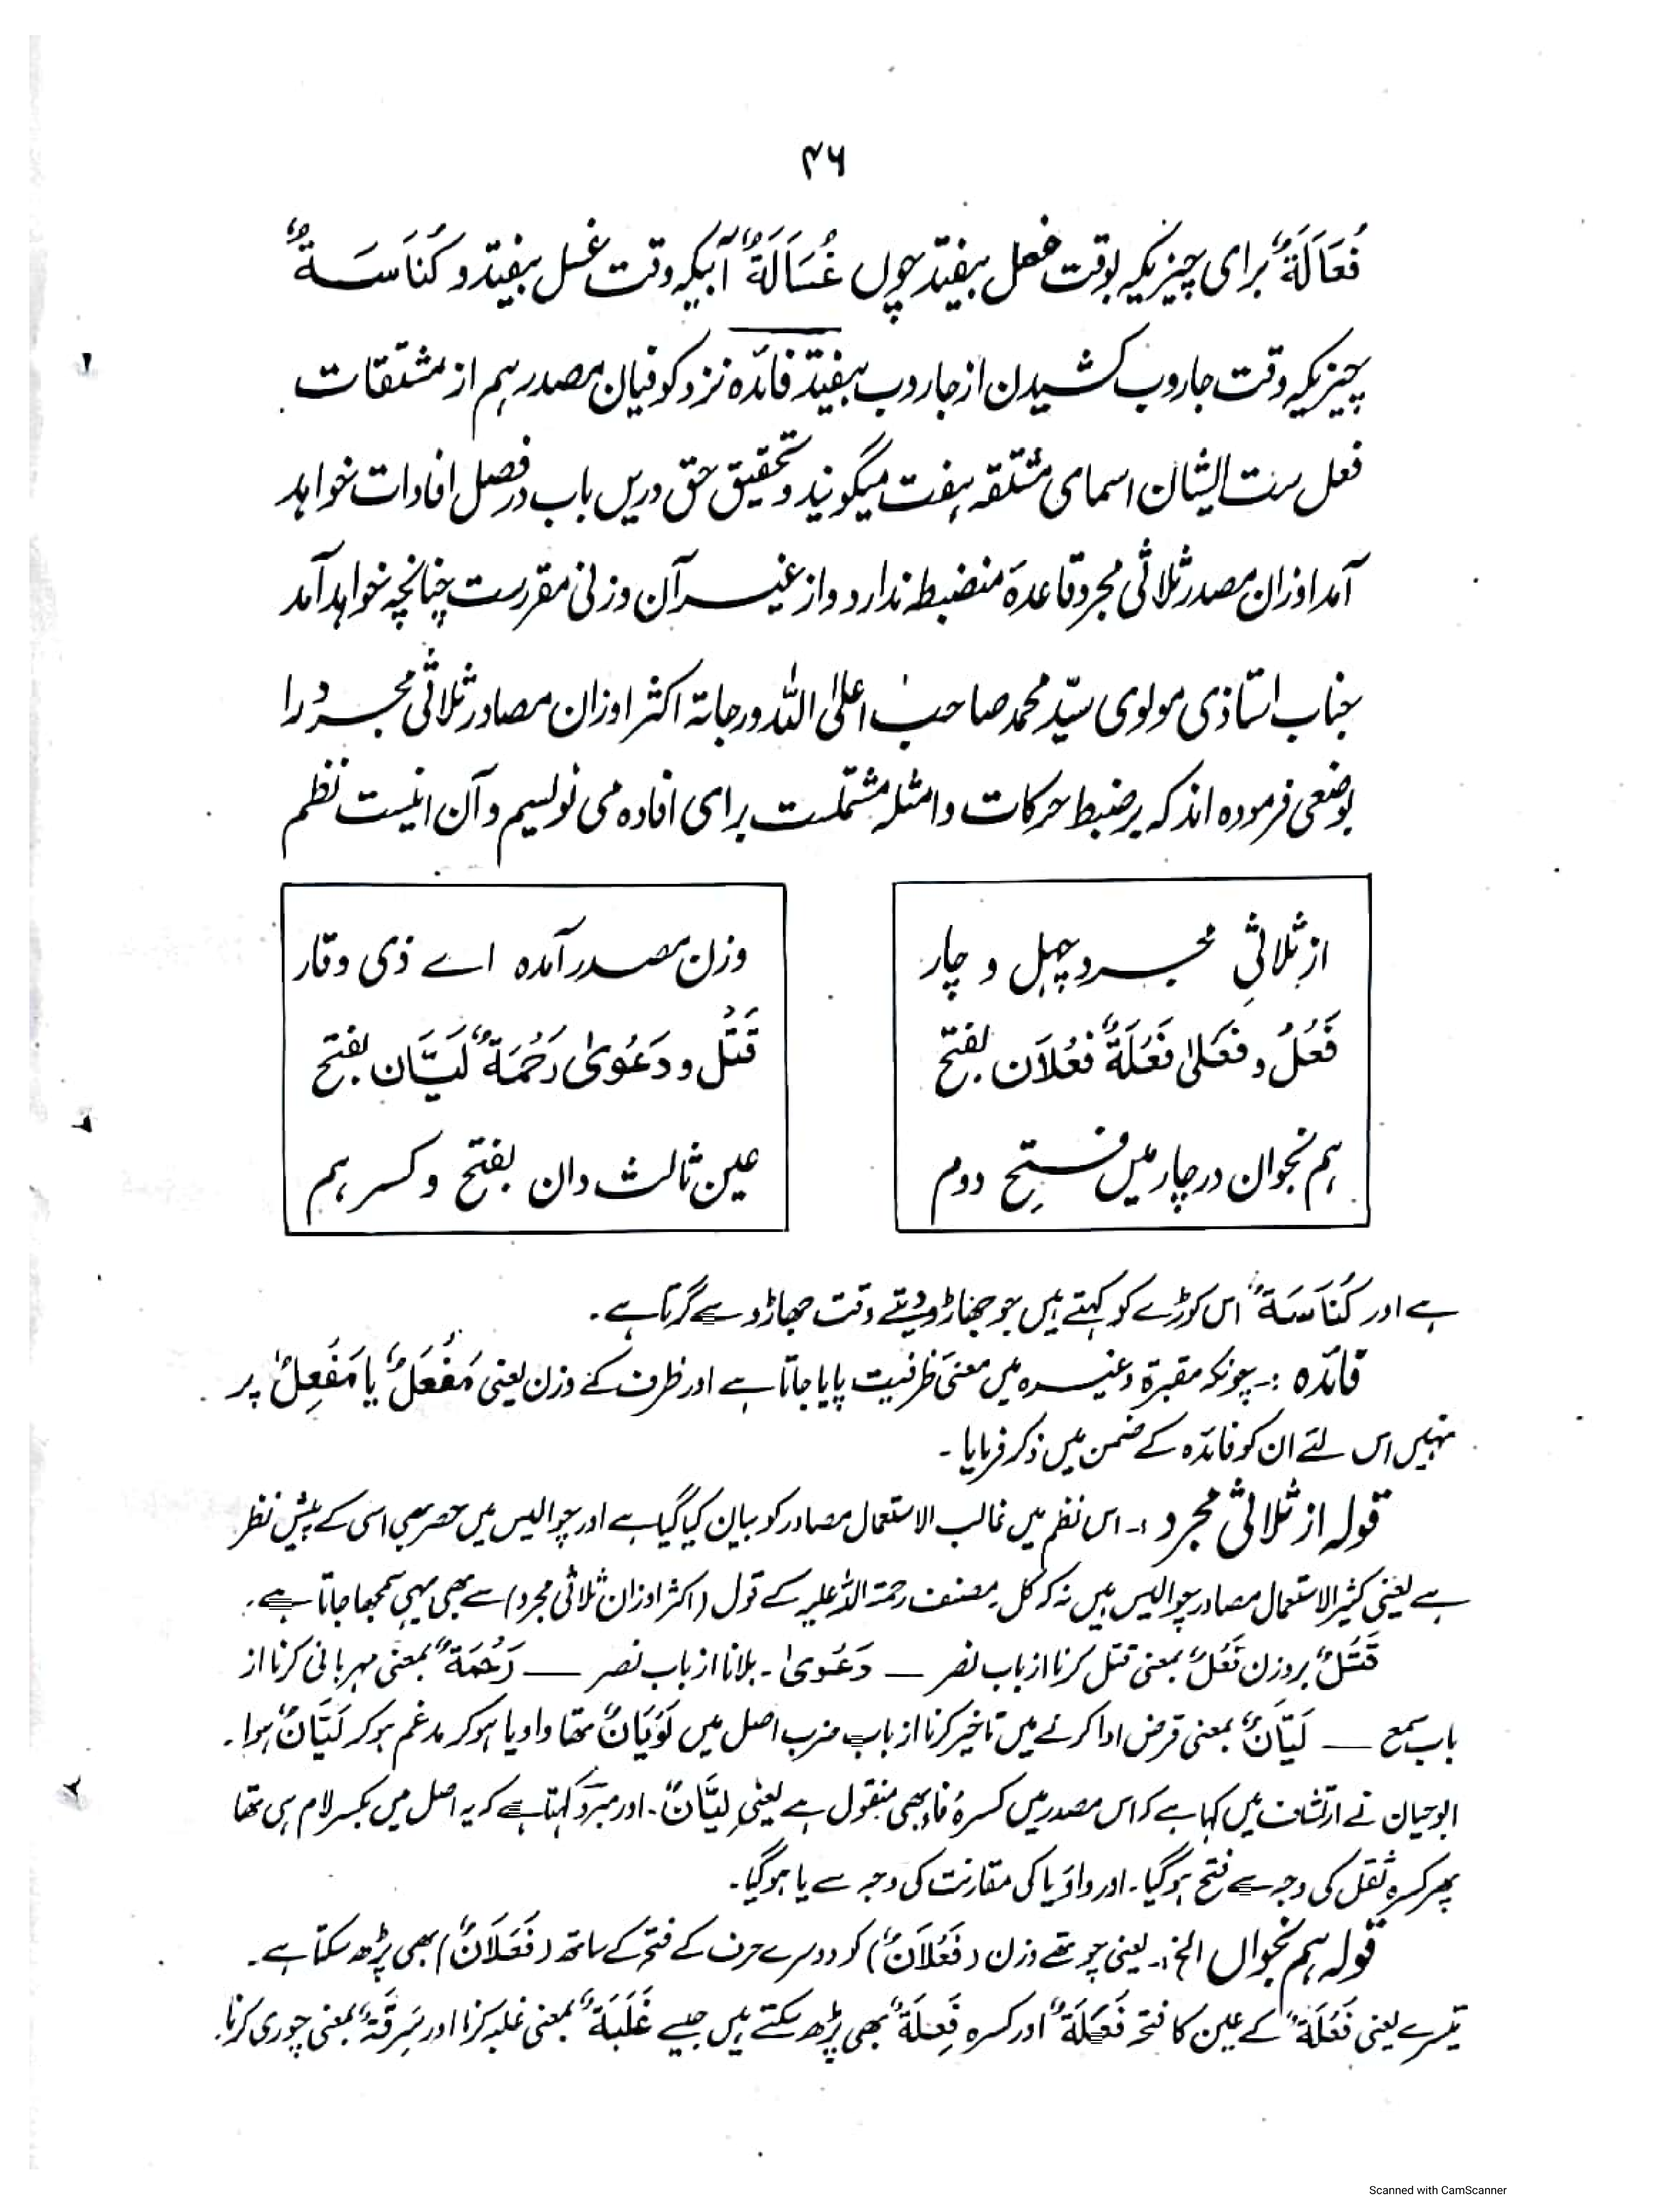 ۴۶
فُعَالَةٌ برای چیزیکہ بوقت فعل بیفتد چوں غُسَالَةٌ آبیکہ وقت غسل بیفتد و کُنَاسَةٌ
چیزیکہ وقت جاروب کشیدن از جاروب بیفتد فائدہ نزد کوفیان مصدر ہم از مشتقات
فعل ست ایشان اسمای مشتقہ ہفت میگویند و تحقیق حق دریں باب در فصل افادات خواہد
آمد اوزان مصدر ثلاثی مجرد قاعدۂ منضبط ندارد و از غیر آن وزنی مقررست چنانچہ خواہد آمد
جناب استاذی مولوی سیّد محمد صاحب اعلیٰ اللہ درجاتہ اکثر اوزان مصادر ثلاثی مجرد را
بوضعی فرمودہ اند کہ بر ضبط حرکات و امثلہ مشتملست برای افادہ می نویسیم و آن اینست نظم
از ثلاثیِ مجرد چہل و چار
وزن مصدر آمدہ اے ذی وقار
فَعْلُ و فَعْلیٰ فَعْلَةٌ فَعْلَان بفتح
قَتْلُ و دَعْویٰ رَحْمَةٌ لَیَّان بفتح
ہم بخوان در چارمیں فتحِ دوم
عین ثالث دان بفتح و کسر ہم
ہے اور کُنَاسَةٌ اس کوڑے کو کہتے ہیں جو جھاڑو دیتے وقت جھاڑو سے گرتا ہے۔
فائدہ :۔ چونکہ مقبرۃ وغیرہ میں معنیٔ ظرفیت پایا جاتا ہے اور ظرف کے وزن یعنی مَفْعَلٌ یا مَفْعِلٌ پر
نہیں اس لئے ان کو فائدہ کے ضمن میں ذکر فرمایا ۔
قولہ از ثلاثی مجرد :۔ اس نظم میں غالب الاستعمال مصادر کو بیان کیا گیا ہے اور چوالیس میں حصر بھی اسی کے پیش نظر
ہے یعنی کثیر الاستعمال مصادر چوالیس ہیں نہ کہ کل مصنف رحمۃ اللہ علیہ کے قول (اکثر اوزان ثلاثی مجرد) سے بھی یہی سمجھا جاتا ہے۔
قَتْلٌ بروزن فَعْلٌ بمعنی قتل کرنا از باب نصر — دَعْویٰ ۔ بلانا از باب نصر — رَحْمَةٌ بمعنی مہربانی کرنا از
باب سمع — لَیَّانٌ بمعنی قرض ادا کرنے میں تاخیر کرنا از باب ضرب اصل میں لَوْیَانٌ تھا واو یا ہو کر مدغم ہو کر لَیَّانٌ ہوا۔
ابو حیان نے ارتشاف میں کہا ہے کہ اس مصدر میں کسرۂ فاء بھی منقول ہے یعنی لِیَّانٌ۔ اور مبرّد کہتا ہے کہ یہ اصل میں بکسر لام ہی تھا
پھر کسرہ ثقل کی وجہ سے فتح ہو گیا۔ اور واو یا کی مقارنت کی وجہ سے یا ہو گیا۔
قولہ ہم بخواں الخ :۔ یعنی چوتھے وزن (فَعْلَانٌ) کو دوسرے حرف کے فتحہ کے ساتھ (فَعَلَانٌ) بھی پڑھ سکتا ہے۔
تیسرے یعنی فَعْلَةٌ کے عین کا فتحہ فَعَلَةٌ اور کسرہ فَعِلَةٌ بھی پڑھ سکتے ہیں جیسے غَلَبَةٌ بمعنی غلبہ کرنا اور سَرِقَةٌ بمعنی چوری کرنا۔
Scanned with CamScanner